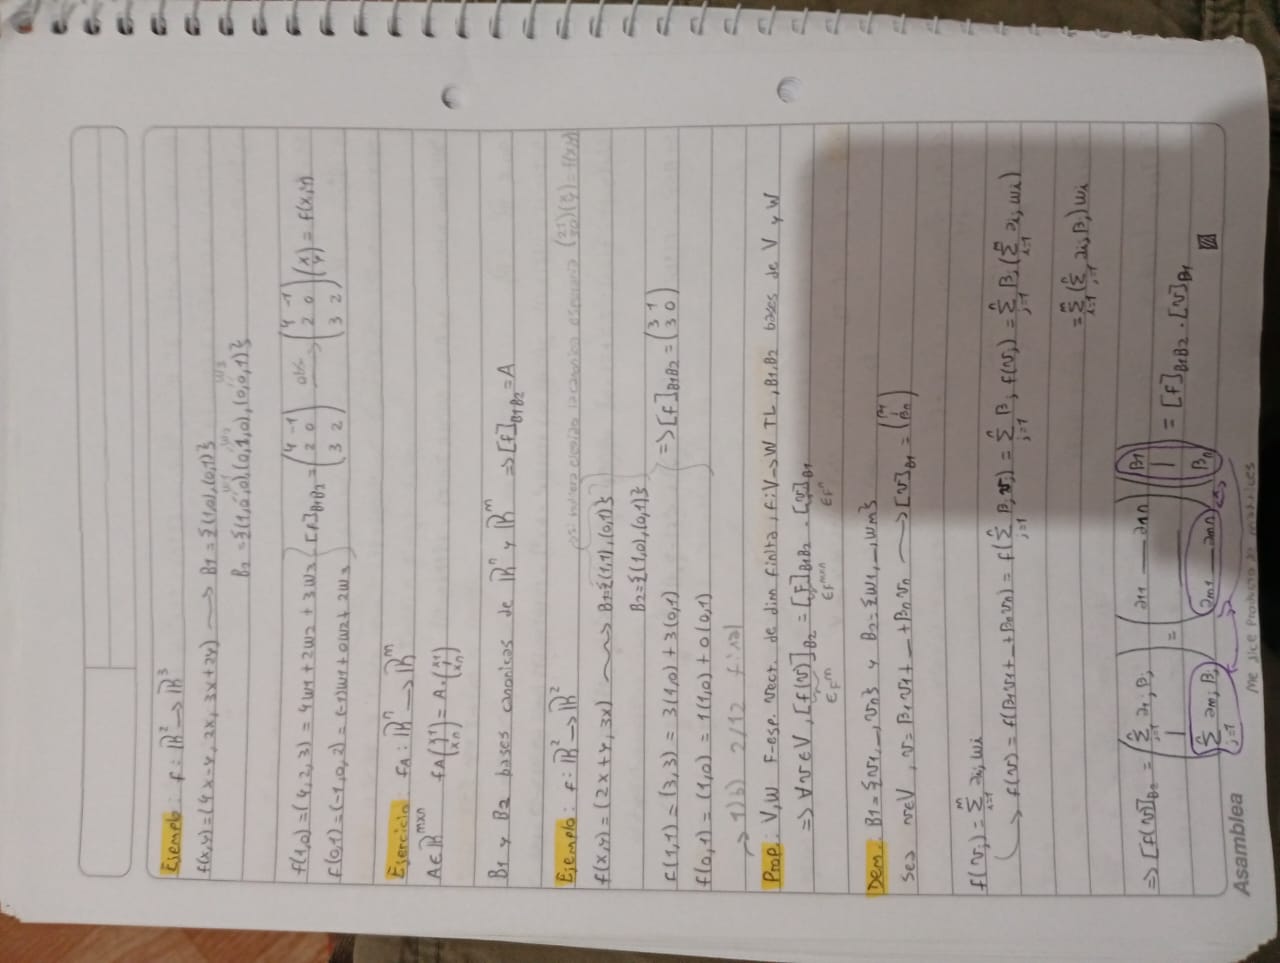 Ejemplo: f: ℝ² → ℝ³
f(x,y)=(4x-y, 2x, 3x+2y) → B1={(1,0),(0,1)}
B2={(1,0,0),(0,1,0),(0,0,1)}
f(1,0)=(4,2,3)=4w1+2w2+3w3
f(0,1)=(-1,0,2)=(-1)w1+0w2+2w3
[f]B1B2=(4 -1
2 0
3 2) obs. → (4 -1
2 0
3 2)(x
y)=f(x,y)
Ejercicio: fA: ℝⁿ → ℝᵐ
A∈ℝᵐˣⁿ fA(x1
⋮
xn)=A.(x1
⋮
xn)
B1 y B2 bases canonicas de ℝⁿ y ℝᵐ ⇒ [f]B1B2=A
Ejemplo: f: ℝ² → ℝ² (2 1
3 0)(x
y)=f(x,y)
f(x,y)=(2x+y, 3x) → B1={(1,1),(0,1)}
B2={(1,0),(0,1)}
f(1,1)=(3,3)=3(1,0)+3(0,1)
f(0,1)=(1,0)=1(1,0)+0(0,1)
⇒[f]B1B2=(3 1
3 0)
→ 1)b) 2/12 final
Prop: V,W F-esp. vect. de dim finita, f:V→W TL, B1,B2 bases de V y W
⇒ ∀v∈V, [f(v)]B2 = [f]B1B2 . [v]B1
∈Fᵐ ∈Fᵐˣⁿ ∈Fⁿ
Dem: B1={v1,_,vn} y B2={w1,_,wm}
Sea v∈V, v=β1v1+_+βnvn → [v]B1=(β1
⋮
βn)
f(vj)=∑ᵐᵢ₌₁ aij wi
→ f(v)=f(β1v1+_+βnvn)=f(∑ⁿⱼ₌₁ βj vj)=∑ⁿⱼ₌₁ βj f(vj)=∑ⁿⱼ₌₁ βj(∑ᵐᵢ₌₁ aij wi)
=∑ᵐᵢ₌₁(∑ⁿⱼ₌₁ aij βj)wi
⇒[f(v)]B2=(∑ⁿⱼ₌₁ a1j βj
|
∑ⁿⱼ₌₁ amj βj)=(a11 _ a1n
am1 _ amn)(β1
|
βn)=[f]B1B2 . [v]B1
me dice Producto de matrices
Asamblea